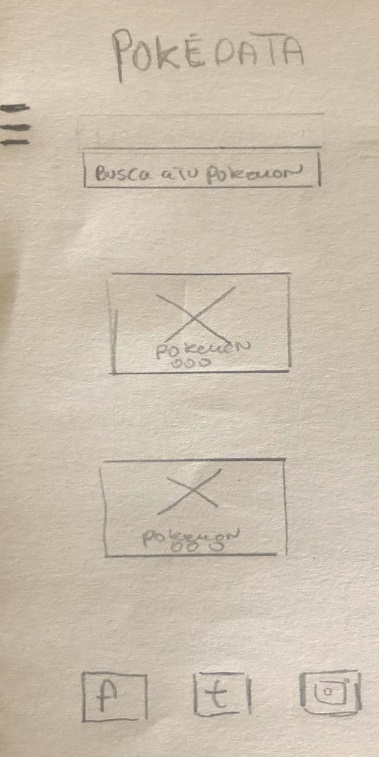 POKÉDATA
Busca a tu pokemon
pokemon
000
pokemon
000
f
t